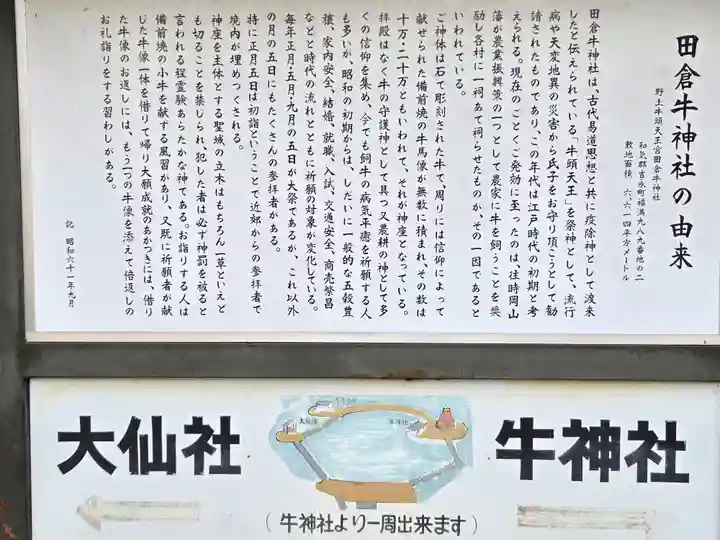 田倉牛神社の由来
野上牛頭天王宮田倉牛神社
和気郡吉永町福満九八九番地の二
敷地面積 六、六一四平方メートル
田倉牛神社は、古代易道思想と共に疫除神として渡来
したと伝えられている「牛頭天王」を祭神として、流行
病や天変地異の災害から氏子をお守り頂こうとして勧
請されたものであり、この年代は江戸時代の初期と考
えられる。現在のごとくご発効に至ったのは、往時岡山
藩が農業振興策の一つとして農家に牛を飼うことを奨
励し各村に一祠あて祠らせたものが、その一因であると
いわれている。
ご神体は石で彫刻された牛で、周りには信仰によって
献ぜられた備前焼の牛馬像が無数に積まれ、その数は
十万・二十万ともいわれて、それが神座となっている。
拝殿はなく牛の守護神として且つ又農耕の神として多
くの信仰を集め、今でも飼牛の病気平癒を祈願する人
も多いが、昭和の初期からは、しだいに一般的な五穀豊
穣、家内安全、結婚、就職、入試、交通安全、商売繁昌
などと時代の流れとともに祈願の対象が変化している。
毎年正月・五月・九月の五日が大祭であるが、これ以外
の月の五日にもたくさんの参拝者がある。
特に正月五日は初詣ということで近郊からの参拝者で
境内が埋めつくされる。
神座を主体とする聖域の立木はもちろん一草といえど
も切ることを禁じられ、犯した者は必ず神罰を被ると
言われる程霊験あらたかな神である。お詣りする人は
備前焼の小牛を献する風習があり、又既に祈願者が献
じた牛像一体を借りて帰り大願成就のあかつきには、借り
た牛像のお返しには、もう一つの牛像を添えて倍返しの
お礼詣りをする習わしがある。
記 昭和六十一年九月
大仙社
大仙社
牛神社
牛神社
(牛神社より一周出来ます)